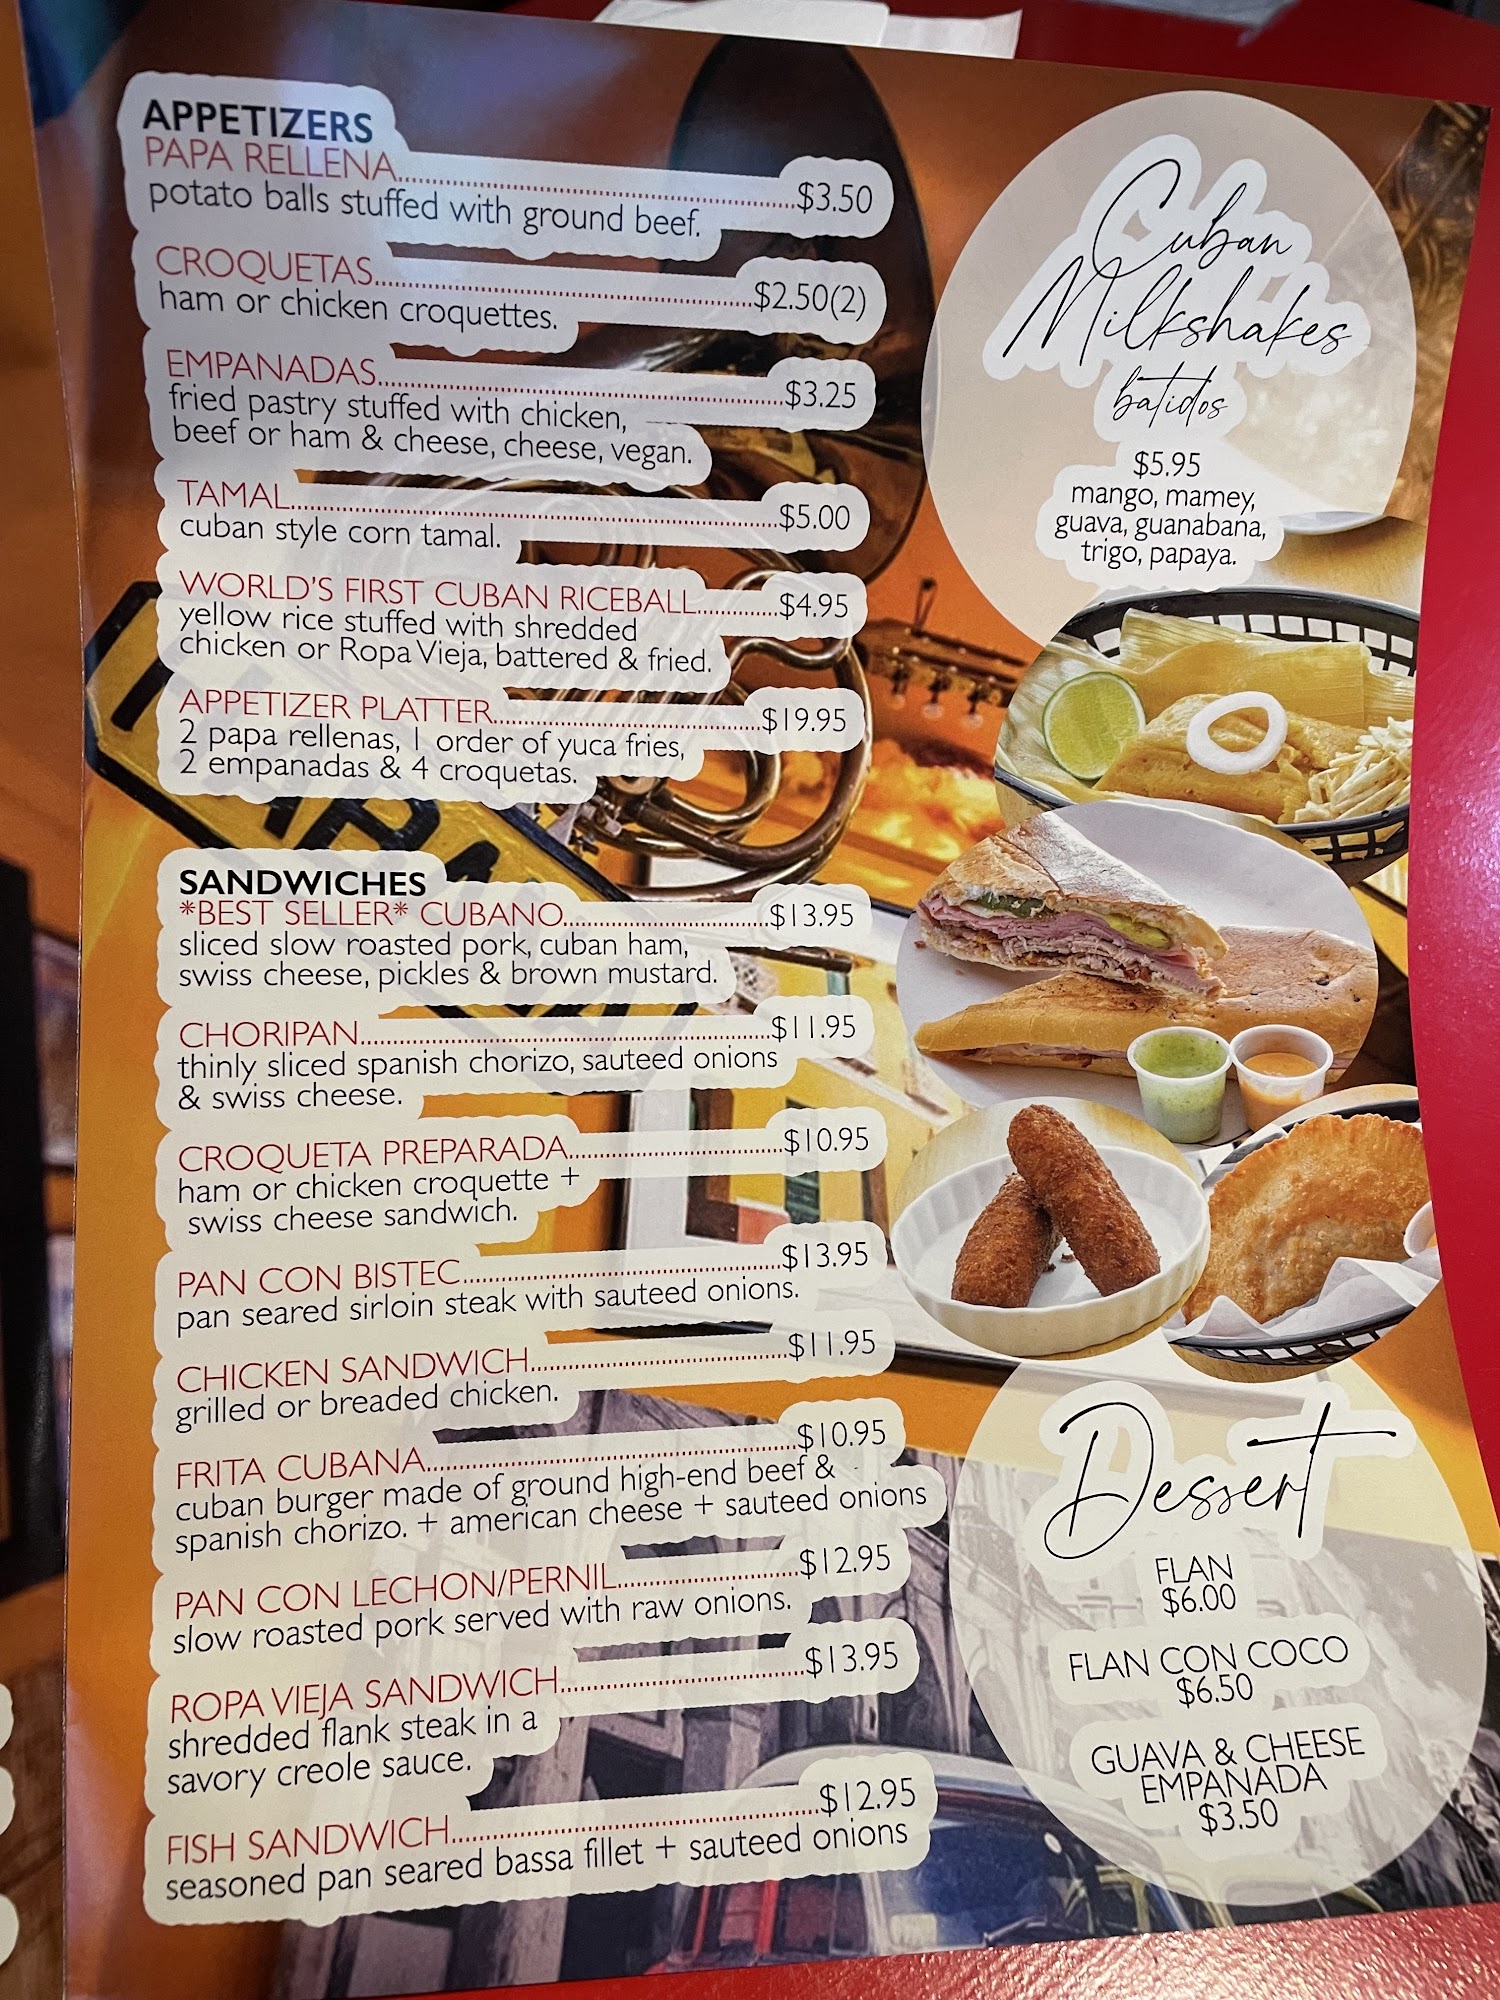 APPETIZERS
PAPA RELLENA..........$3.50
potato balls stuffed with ground beef.
CROQUETAS..........$2.50(2)
ham or chicken croquettes.
EMPANADAS..........$3.25
fried pastry stuffed with chicken,
beef or ham & cheese, cheese, vegan.
TAMAL..........$5.00
cuban style corn tamal.
WORLD'S FIRST CUBAN RICEBALL..........$4.95
yellow rice stuffed with shredded
chicken or Ropa Vieja, battered & fried.
APPETIZER PLATTER..........$19.95
2 papa rellenas, 1 order of yuca fries,
2 empanadas & 4 croquetas.
SANDWICHES
*BEST SELLER* CUBANO..........$13.95
sliced slow roasted pork, cuban ham,
swiss cheese, pickles & brown mustard.
CHORIPAN..........$11.95
thinly sliced spanish chorizo, sauteed onions
& swiss cheese.
CROQUETA PREPARADA..........$10.95
ham or chicken croquette +
swiss cheese sandwich.
PAN CON BISTEC..........$13.95
pan seared sirloin steak with sauteed onions.
CHICKEN SANDWICH..........$11.95
grilled or breaded chicken.
FRITA CUBANA..........$10.95
cuban burger made of ground high-end beef &
spanish chorizo. + american cheese + sauteed onions
PAN CON LECHON/PERNIL..........$12.95
slow roasted pork served with raw onions.
ROPA VIEJA SANDWICH..........$13.95
shredded flank steak in a
savory creole sauce.
FISH SANDWICH..........$12.95
seasoned pan seared bassa fillet + sauteed onions
Cuban
Milkshakes
batidos
$5.95
mango, mamey,
guava, guanabana,
trigo, papaya.
Dessert
FLAN
$6.00
FLAN CON COCO
$6.50
GUAVA & CHEESE
EMPANADA
$3.50